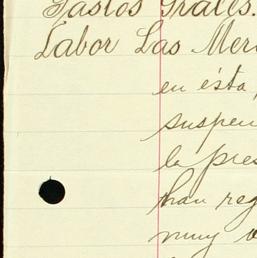 Gastos Grales.
Labor Las Mer
en ésta,
suspen
la pres
han reg
muy v